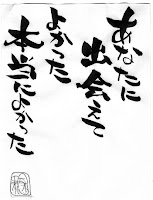 あなたに
出会えて
よかった
本当によかった